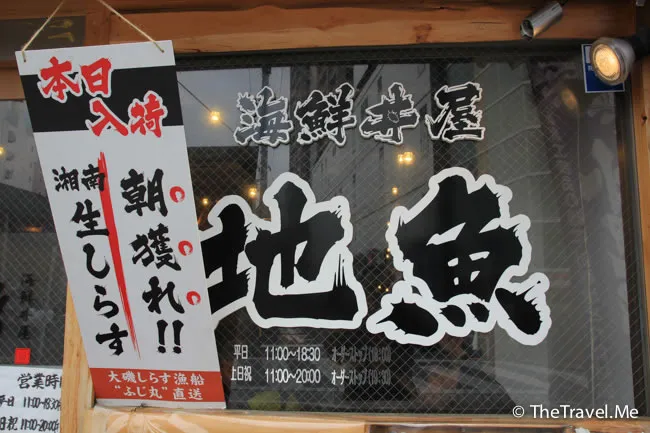 本日
入荷
朝獲れ!!
湘南
生しらす
大磯しらす漁船
"ふじ丸"直送
海鮮丼屋
地魚
平日 11:00~18:30 オーダーストップ
土日祝 11:00~20:00 オーダーストップ
海鮮丼屋
営業時
平日 11:00-18:
日祝 11:00-20:0
© TheTravel.Me